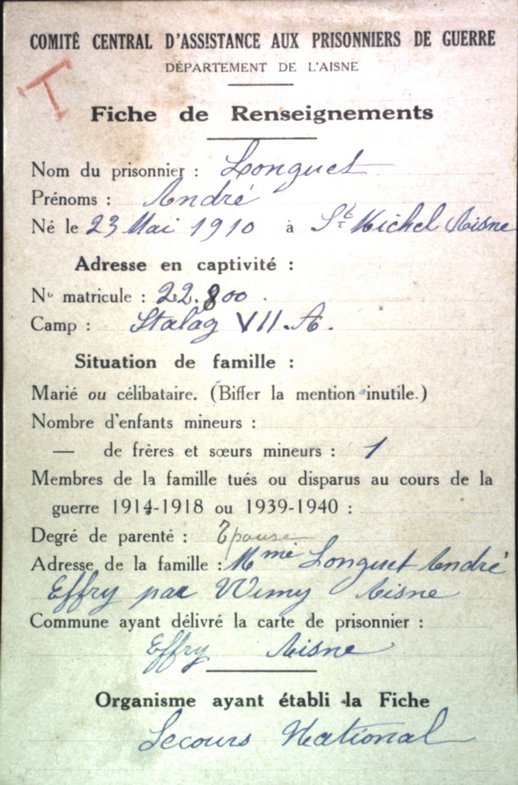 COMITÉ CENTRAL D'ASSISTANCE AUX PRISONNIERS DE GUERRE
DÉPARTEMENT DE L'AISNE
T
Fiche de Renseignements
Nom du prisonnier : Longuet
Prénoms : André
Né le 23 Mai 1910 à St Michel Aisne
Adresse en captivité :
No matricule : 22.800.
Camp : Stalag VII. A.
Situation de famille :
Marié ou célibataire. (Biffer la mention inutile.)
Nombre d'enfants mineurs :
— de frères et sœurs mineurs : 1
Membres de la famille tués ou disparus au cours de la
guerre 1914-1918 ou 1939-1940 :
Degré de parenté : Epouse
Adresse de la famille : Mme Longuet André
Effry par Wimy Aisne
Commune ayant délivré la carte de prisonnier :
Effry Aisne
Organisme ayant établi la Fiche
Secours National